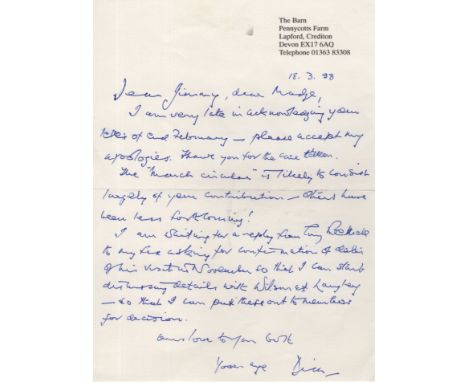 The Barn
Pennycotts Farm
Lapford, Crediton
Devon EX17 6AQ
Telephone 01363 83308
18. 3. 98
Dear Jimmy, dear Madge,
I am very late in acknowledging your
letter of 2nd February – please accept my
apologies. Thank you for the care taken.
The "March circular" is likely to consist
largely of your contribution – others have
been less forthcoming!
I am waiting for a reply from Tony
to my fax asking for confirmation of dates
of his visit in November so that I can start
discussing details with Wilson at Langley
– so that I can put these out to members
for decision.
love to you both
Yours aye